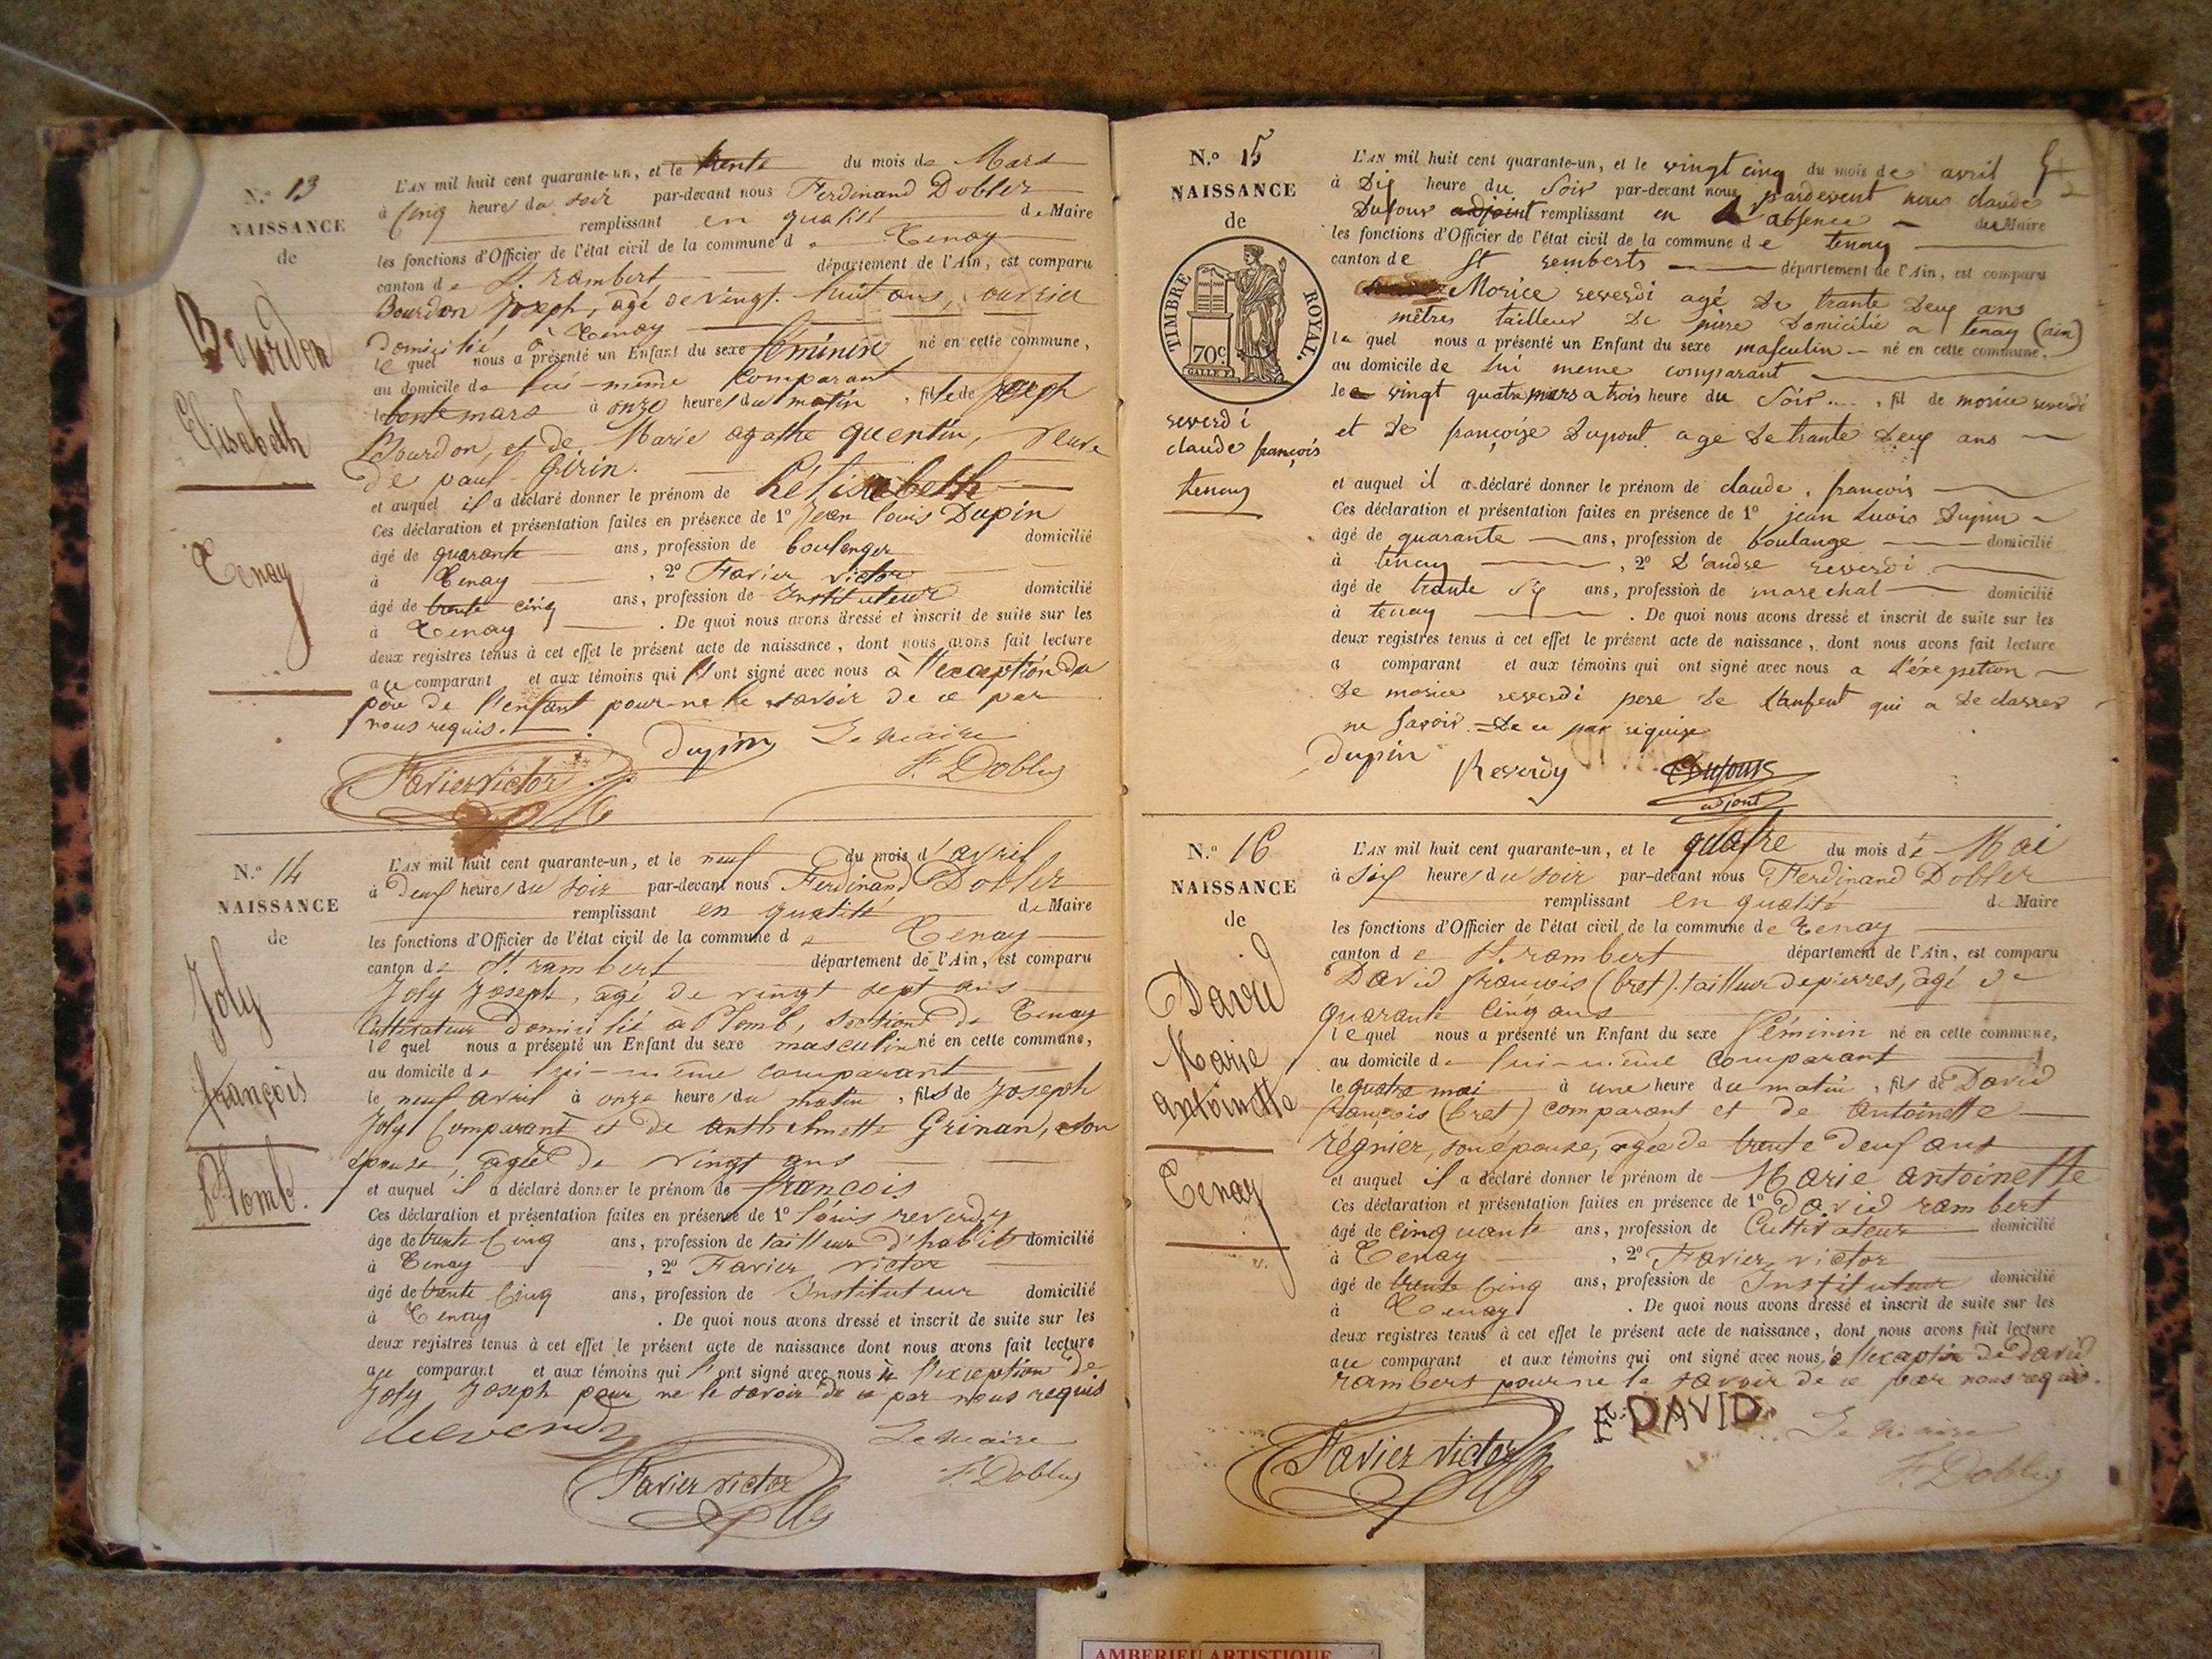 N.° 13
NAISSANCE
de
Bourdon
Elisabeth
Tenay
L'AN mil huit cent quarante-un, et le trente du mois de Mars
à Cinq heures du soir par-devant nous Ferdinand Dobler
remplissant en qualité de Maire
les fonctions d'Officier de l'état civil de la commune de Tenay
canton de St. rambert département de l'Ain, est comparu
Bourdon Joseph, agé de vingt-huit ans, ouvrier
Domicilié à Tenay
le quel nous a présenté un Enfant du sexe féminin né en cette commune,
au domicile de lui-même comparant
le trente mars à onze heures du matin, fille de Joseph
Bourdon, et de Marie agathe quentin, veuve
de paul Girin.
et auquel il a déclaré donner le prénom de
Ces déclaration et présentation faites en présence de 1° Jean louis Dupin
âgé de quarante ans, profession de boulanger domicilié
à Tenay, 2° Favier victor
âgé de trente cinq ans, profession de Instituteur domicilié
à Tenay. De quoi nous avons dressé et inscrit de suite sur les
deux registres tenus à cet effet le présent acte de naissance, dont nous avons fait lecture
au comparant et aux témoins qui l'ont signé avec nous à l'exception du
père de l'enfant pour ne le savoir de ce par
nous requis.
Dupin Le Maire
Favier victor F. Dobler
N.° 14
NAISSANCE
de
Joly
françois
Plomb.
L'AN mil huit cent quarante-un, et le neuf du mois d'avril
à Deux heures du soir par-devant nous Ferdinand Dobler
remplissant en qualité de Maire
les fonctions d'Officier de l'état civil de la commune de Tenay
canton de St. rambert département de l'Ain, est comparu
Joly Joseph, agé de vingt sept ans
Cultivateur Domicilié à Plomb, section de Tenay
le quel nous a présenté un Enfant du sexe masculin né en cette commune,
au domicile de lui-même comparant
le neuf avril à onze heures du matin, fils de Joseph
Joly Comparant et de anthelmette Grinan, son
épouse, agée de vingt ans
et auquel il a déclaré donner le prénom de françois
Ces déclaration et présentation faites en présence de 1° louis reverdy
âgé de trente Cinq ans, profession de tailleur d'habit domicilié
à Tenay, 2° Favier victor
âgé de trente Cinq ans, profession de Instituteur domicilié
à Tenay. De quoi nous avons dressé et inscrit de suite sur les
deux registres tenus à cet effet le présent acte de naissance dont nous avons fait lecture
au comparant et aux témoins qui l'ont signé avec nous à l'exception de
Joly Joseph pour ne le savoir de ce par nous requis
Reverdy Le Maire
Favier victor F. Dobler
N.° 15
NAISSANCE
de
TIMBRE ROYAL.
70c.
reverdi
claude françois
tenay
L'AN mil huit cent quarante-un, et le vingt cinq du mois de avril
à Dix heure du Soir par-devant nous pardevent nous claude
Dufour adjoint remplissant en absence du Maire
les fonctions d'Officier de l'état civil de la commune de tenay
canton de St remberts département de l'Ain, est comparu
Morice reverdi agé de trante Deux ans
mêtres tailleur De pière Domicilié a tenay (ain)
le quel nous a présenté un Enfant du sexe masculin né en cette commune,
au domicile de lui meme comparant
le vingt quatre mars a trois heure du Soir, fil de morice reverdi
et de françoize Dupont age de trante Deux ans
et auquel il a déclaré donner le prénom de claude, françois
Ces déclaration et présentation faites en présence de 1° jean Luois Dupin
âgé de quarante ans, profession de boulange domicilié
à tenay, 2° D'andre reverdi
âgé de trante six ans, profession de marechal domicilié
à tenay. De quoi nous avons dressé et inscrit de suite sur les
deux registres tenus à cet effet le présent acte de naissance, dont nous avons fait lecture
a comparant et aux témoins qui ont signé avec nous a l'éxepetion
de morice reverdi pere de l'anfent qui a declarer
ne Savoir de ce par requise
Dupin Reverdy Dufour
adjoint
N.° 16
NAISSANCE
de
David
Marie
antoinette
Tenay
L'AN mil huit cent quarante-un, et le quatre du mois de Mai
à six heures du soir par-devant nous Ferdinand Dobler
remplissant en qualité de Maire
les fonctions d'Officier de l'état civil de la commune de Tenay
canton de St. rambert département de l'Ain, est comparu
David françois (bret), tailleur de pierres, agé de
quarante cinq ans
le quel nous a présenté un Enfant du sexe féminin né en cette commune,
au domicile de lui-même comparant
le quatre mai à une heure du matin, fils de David
françois (bret) comparant et de antoinette
régnier, son épouse, agée de trente deux ans
et auquel il a déclaré donner le prénom de Marie antoinette
Ces déclaration et présentation faites en présence de 1° David rambert
âgé de cinquante ans, profession de Cultivateur domicilié
à Tenay, 2° Favier victor
âgé de trente Cinq ans, profession de Instituteur domicilié
à Tenay. De quoi nous avons dressé et inscrit de suite sur les
deux registres tenus à cet effet le présent acte de naissance, dont nous avons fait lecture
au comparant et aux témoins qui ont signé avec nous, à l'exception de David
rambert pour ne le savoir de ce par nous requis.
F. DAVID Le Maire
Favier victor F. Dobler
AMBERIEU ARTISTIQUE